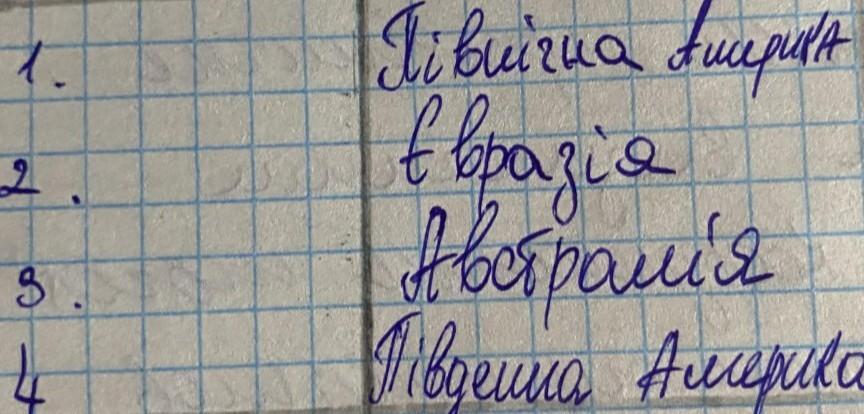 1. Північна Америка
2. Євразія
3. Австралія
4 Південна Америка